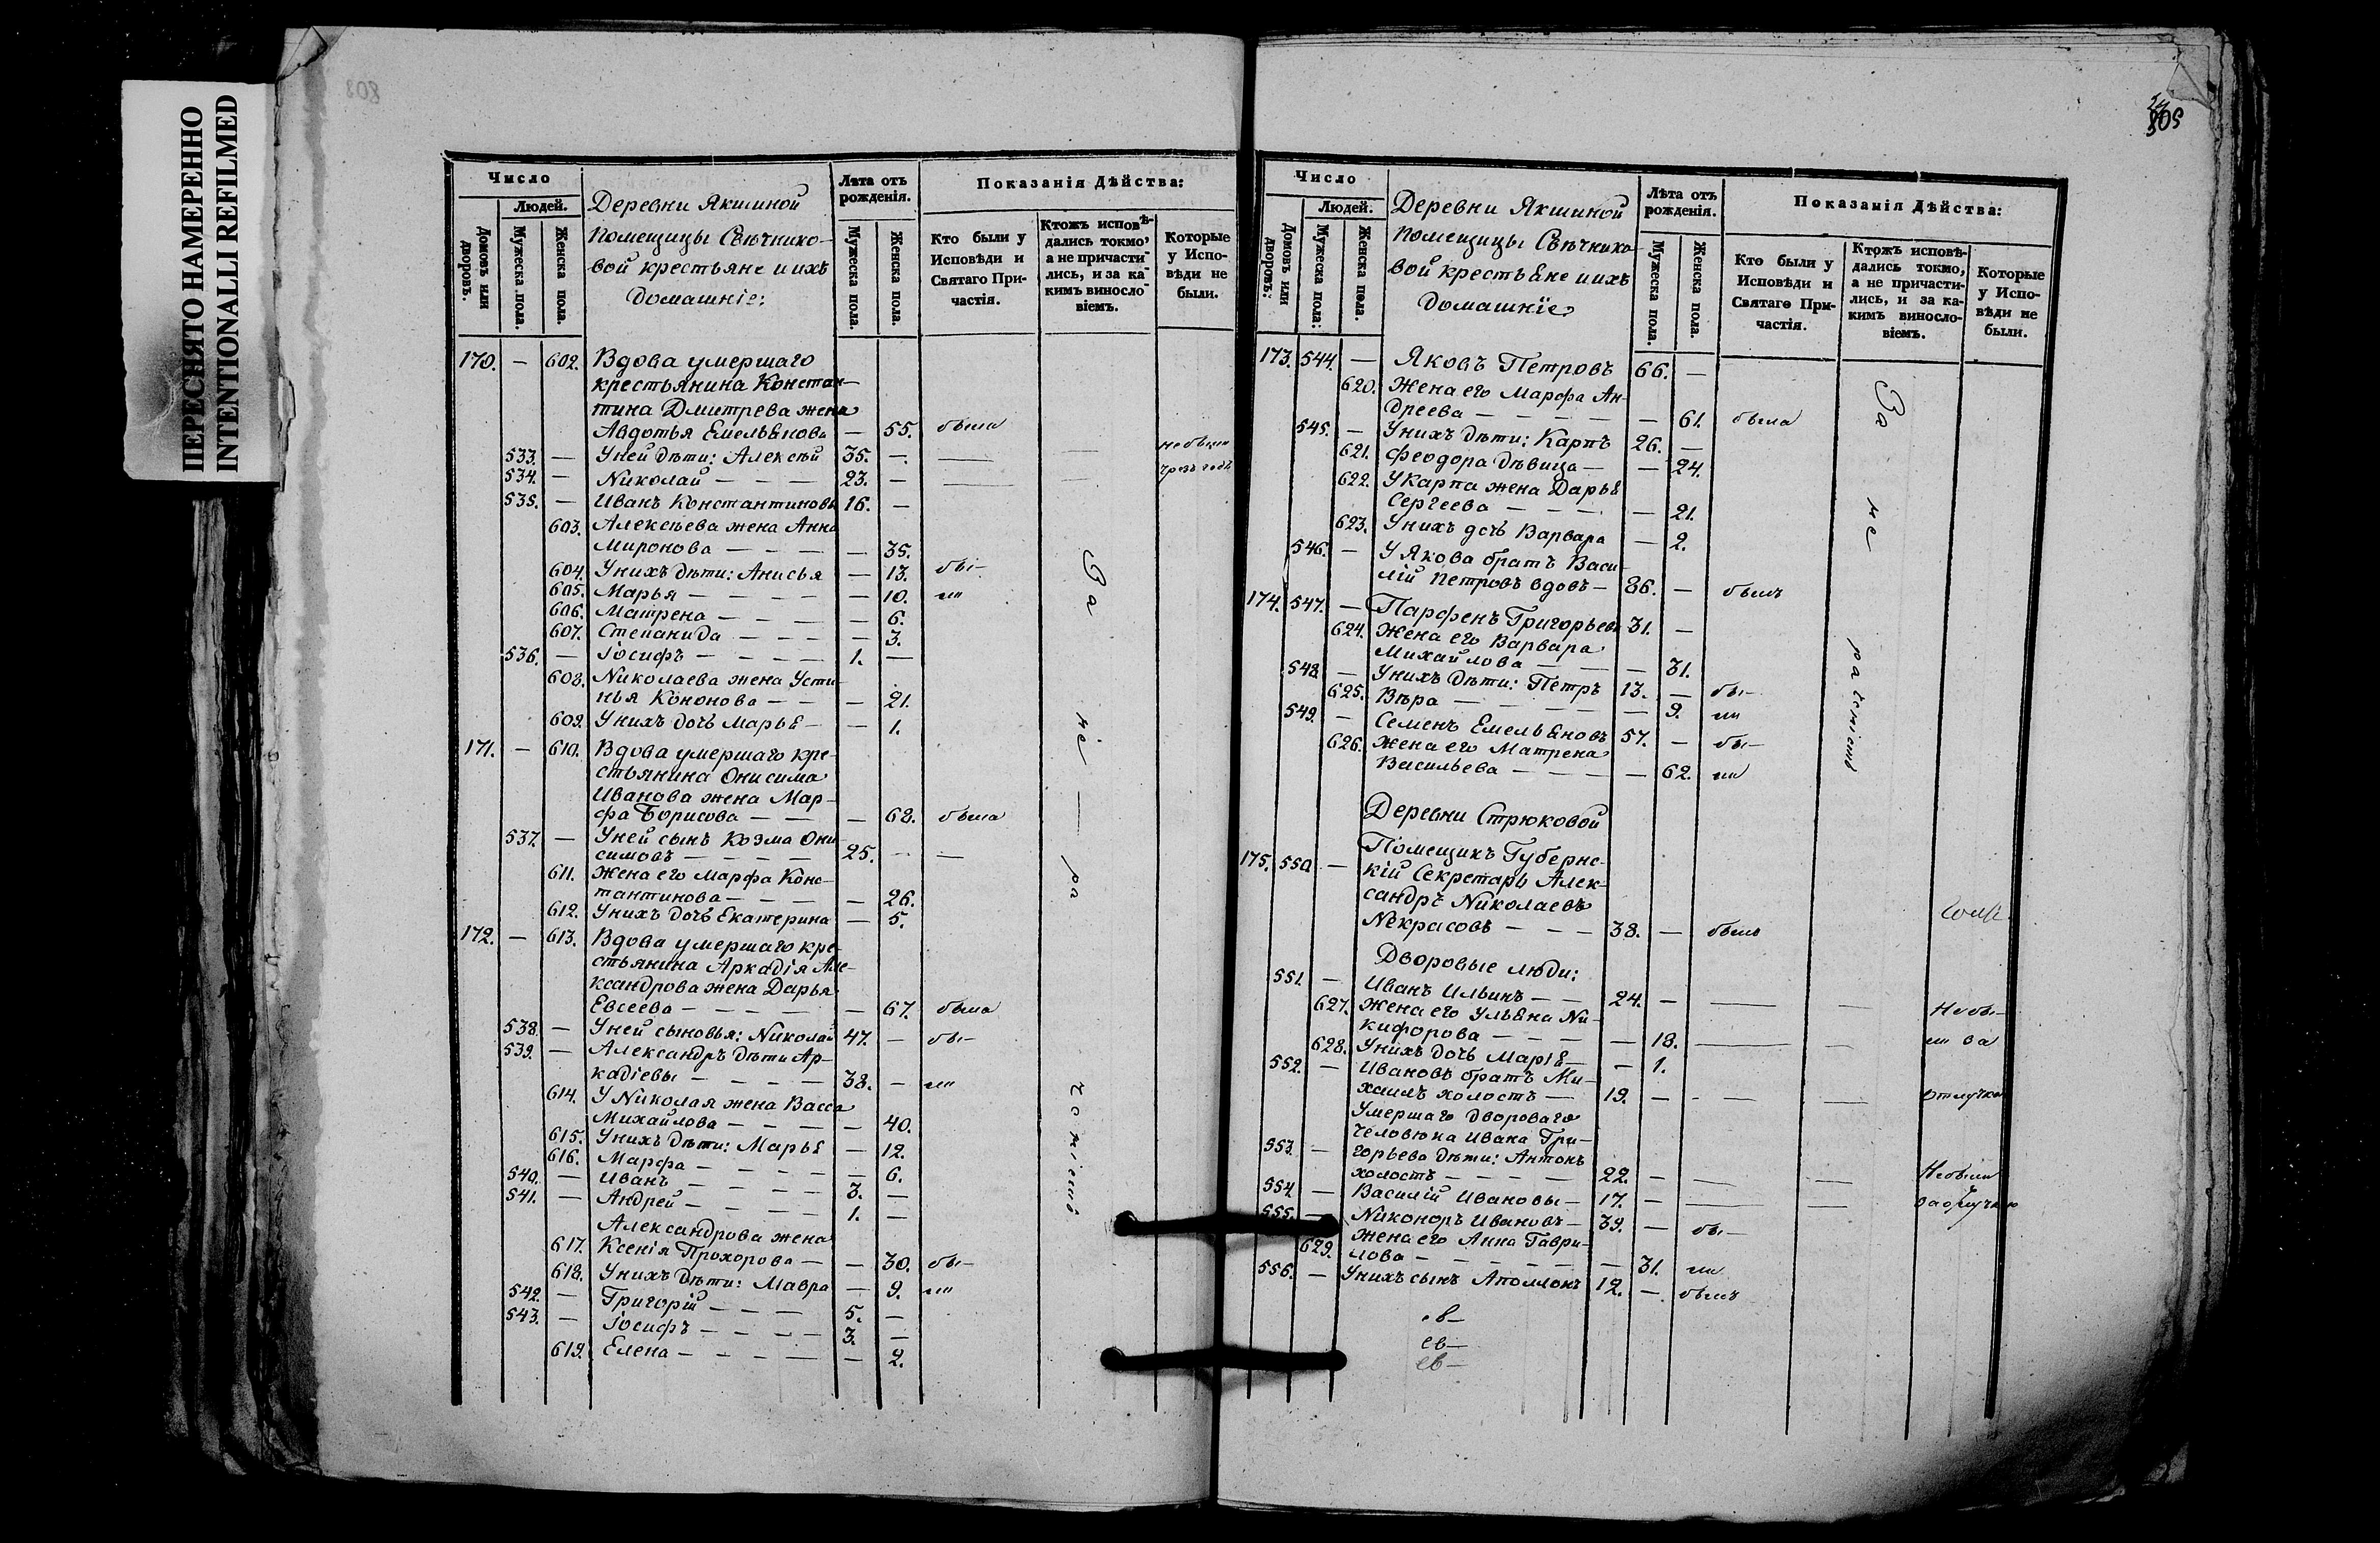 ПЕРЕСНЯТО НАМЕРЕННО
INTENTIONALLI REFILMED
803
Число
Людей.
Домовъ или дворовъ.
Мужеска пола.
Женска пола.
Деревни Якшиной
Помещицы Свѣчнико-
вой крестьяне и ихъ
домашніе:
Лѣта отъ рожденія.
Мужеска пола.
Женска пола.
Показанія Дѣйства:
Кто были у Исповѣди и Святаго Причастія.
Ктожъ исповѣ-
дались токмо,
а не причасти-
лись, и за ка-
кимъ винosло-
віемъ.
Которые
у Испо-
вѣди не
были.
170. — 602. Вдова умершаго
крестьянина Констан-
тина Дмитрева жена
Авдотья Емельянова — 55. была
533. — У ней дѣти: Алексѣй 35. — не были
534. — Николай — — — 23. — чрезъ годъ
535. — Иванъ Константиновы 16. —
603. Алексѣева жена Анна
Миронова — — — — 35.
604. У нихъ дѣти: Анисья — 13. бы-
605. Марья — — — — — 10. ли
606. Матрена — — — — 6.
607. Степанида — — — — 3.
536. — Іосифъ — — — — 1. —
608. Николаева жена Усти-
нья Кононова — — — 21.
609. У нихъ дочь Марья — — 1.
171. — 610. Вдова умершаго кре-
стьянина Онисима
Иванова жена Мар-
фа Борисова — — — 68. была
537. — У ней сынъ Козма Они-
симовъ — — — — 25. — —
611. Жена его Марфа Конс-
тантинова — — — — 26.
612. У нихъ дочь Екатерина — 5.
172. — 613. Вдова умершаго кре-
стьянина Аркадія Але-
ксандрова жена Дарья
Евсеева — — — — — 67. была
538. — У ней сыновья: Николай 47. — бы-
539. — Александръ дѣти Ар-
кадіевы — — — — 38. — ли
614. У Николая жена Васса
Михайлова — — — — 40.
615. У нихъ дѣти: Марья — 12.
616. Марфа — — — — — 6.
540. — Иванъ — — — — 3. —
541. — Андрей — — — — 1. —
Александрова жена
617. Ксенія Прохорова — — 30. бы-
618. У нихъ дѣти: Мавра — 9. ли
542. — Григорій — — — 5. —
543. — Іосифъ — — — — 3. —
619. Елена — — — — — 2.
За не — ра ченіемъ
805
Число
Людей.
Домовъ или дворовъ:
Мужеска пола:
Женска пола.
Деревни Якшиной
Помещицы Свѣчнико-
вой крестьяне и ихъ
домашніе
Лѣта отъ рожденія.
Мужеска пола.
Женска пола.
Показанія Дѣйства:
Кто были у Исповѣди и Святаго Причастія.
Ктожъ исповѣ-
дались токмо,
а не причасти-
лись, и за ка-
кимъ винosло-
віемъ.
Которые
у Испо-
вѣди не
были.
173. 544. — Яковъ Петровъ 66. —
620. Жена его Марфа Ан-
дреева — — — — — 61. была
545. — У нихъ дѣти: Карпъ 26. —
621. Феодора дѣвица — — 24.
622. У Карпа жена Дарья
Сергеева — — — — 21.
623. У нихъ дочь Варвара — 2.
546. — У Якова братъ Васи-
лій Петровъ вдовъ — 86. — былъ
174. 547. — Парфенъ Григорьевъ 31. —
624. Жена его Варвара
Михайлова — — — 31.
548. — У нихъ дѣти: Петръ 13. — бы-
625. Вѣра — — — — — 9. ли
549. — Семенъ Емельяновъ 57. — бы-
626. Жена его Матрена
Васильева — — — — 62. ли
За не раченіемъ
Деревни Стрюковой
175. 550. — Помещикъ Губернс-
кій Секретарь Алек-
сандръ Николаевъ
Некрасовъ — — — 38. — былъ
Дворовые люди:
551. — Иванъ Ильинъ — — 24. — — — Не бы-
627. Жена его Ульяна Ни-
кифорова — — — — 18. — — ли за
628. У нихъ дочь Марія — — 1.
552. — Ивановъ братъ Ми-
хаилъ холостъ — 19. — — — отлучкою
Умершаго двороваго
человѣка Ивана Гри-
553. — горьева дѣти: Антонъ
холостъ — — — — 22. — — — Не были
554. — Василій Ивановы — 17. — — — за отлучкою
555. — Никоноръ Ивановъ — 39. — бы-
629. Жена его Анна Гаври-
лова — — — — — — 31. ли
556. — У нихъ сынъ Аполлонъ 12. — былъ